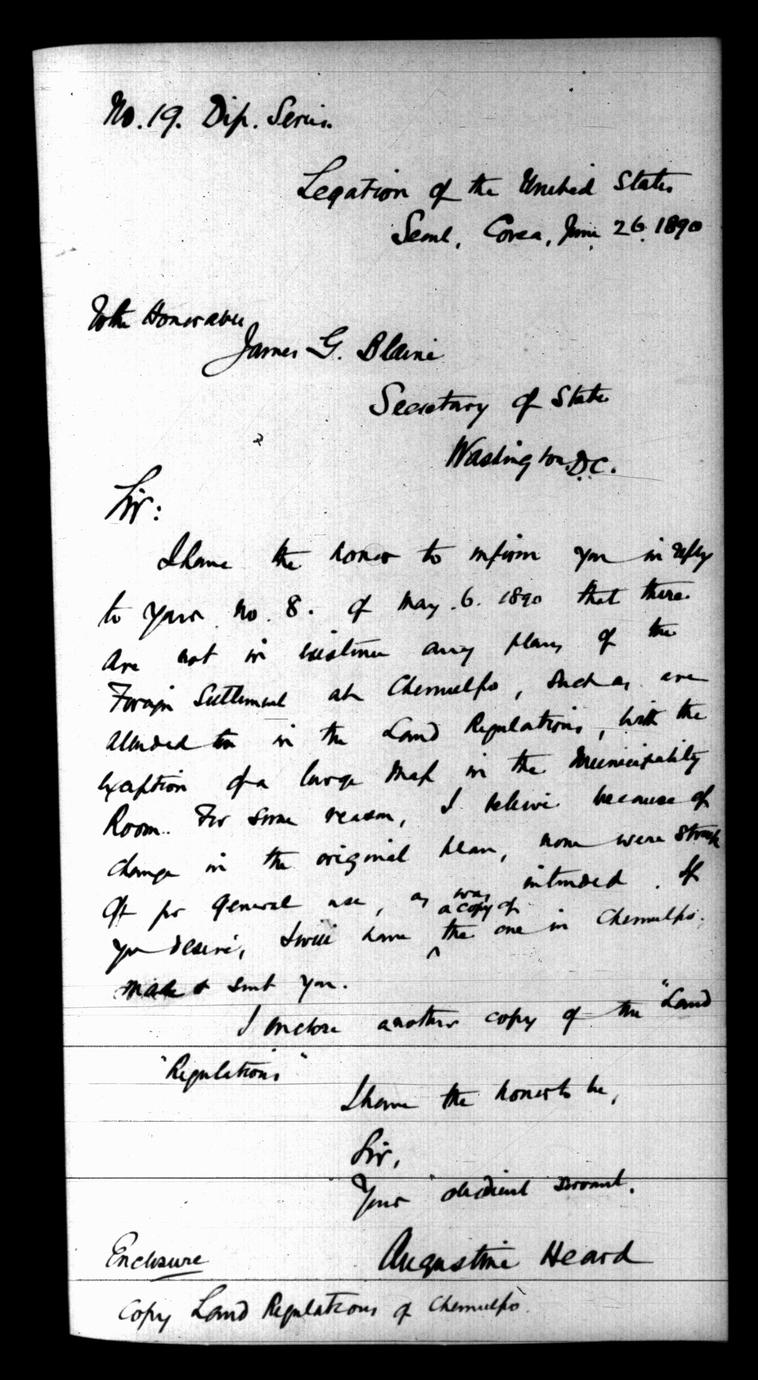 No. 19. Dip. Series.
Legation of the United States
Seoul, Corea, June 26. 1890
To the Honorable
James G. Blaine
Secretary of State
Washington, D.C.
Sir:
I have the honor to inform you in reply
to your No. 8. of May 6. 1890 that there
are not in existence any plans of the
Foreign Settlement at Chemulpo, such as are
alluded to in the Land Regulations, with the
exception of a large Map in the Municipality
Room. For some reason, I believe because of
change in the original plan, none were struck
off for general use, as was intended. If
you desire, I will have the a copy of one in Chemulpo
made & sent you.
I enclose another copy of the "Land
"Regulations"
I have the honor to be,
Sir,
Your obedient servant,
Augustine Heard
Enclosure
Copy Land Regulations of Chemulpo.